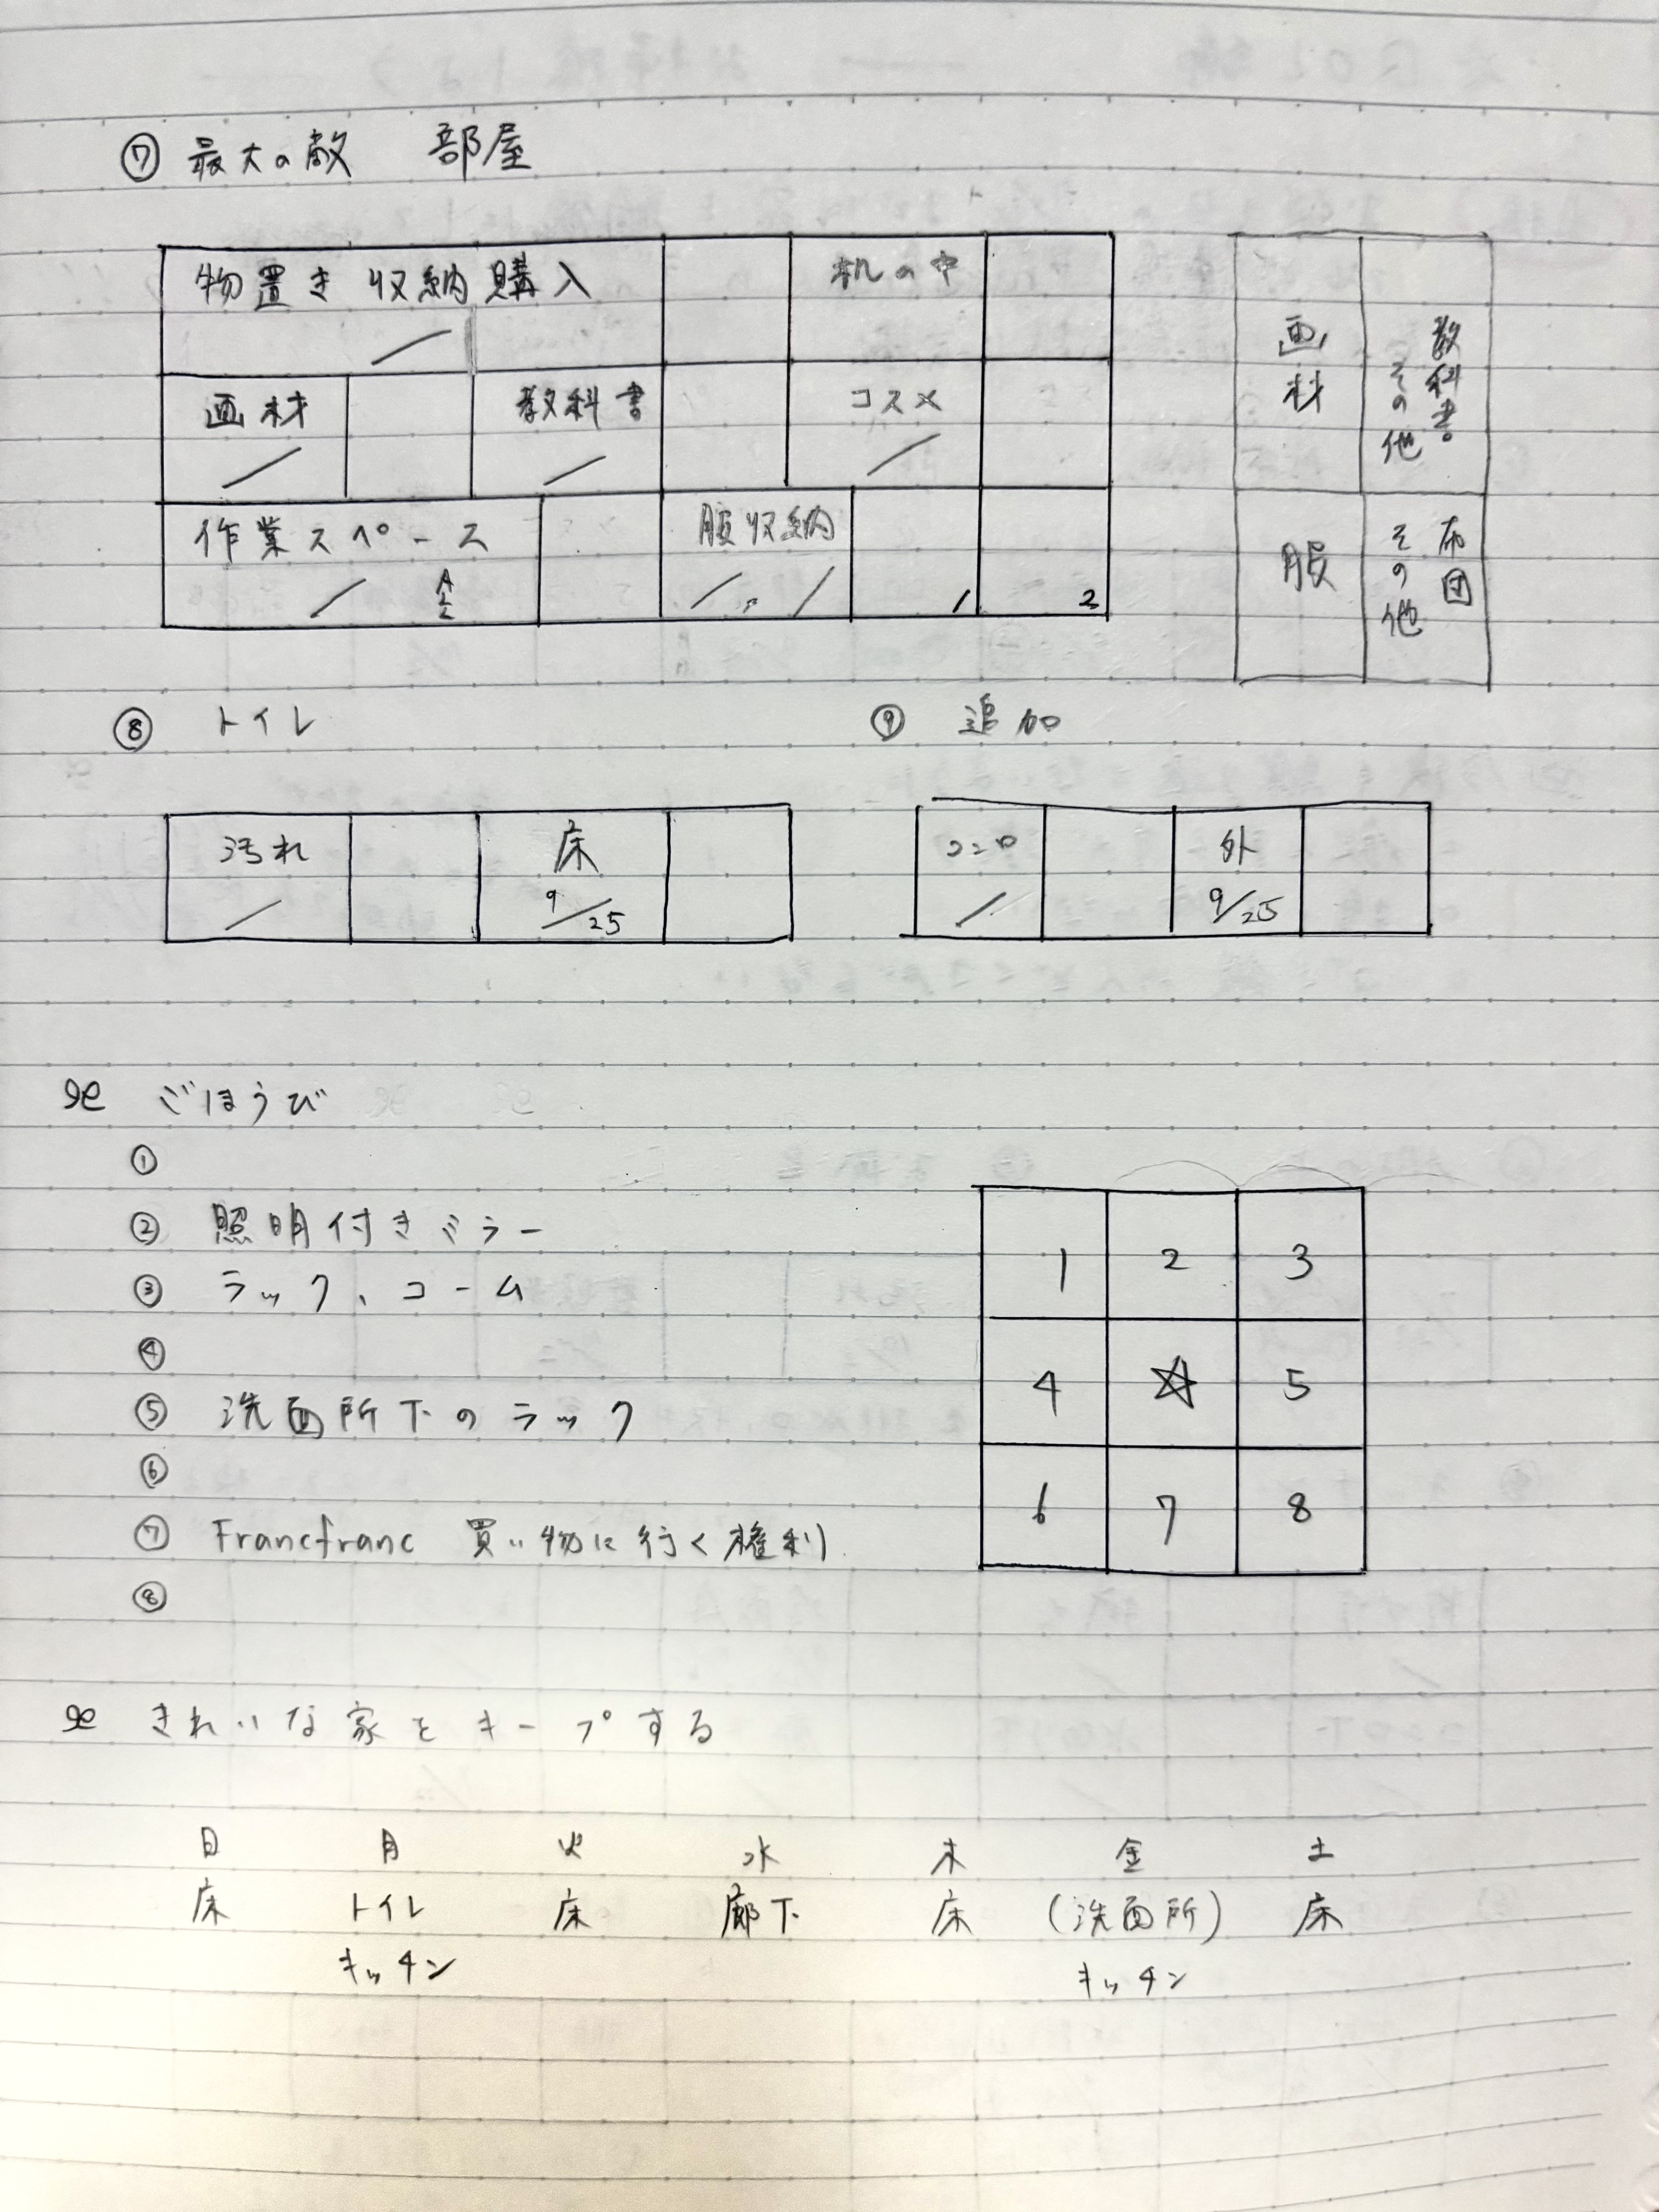 ⑦ 最大の敵 部屋
物置き 収納 購入 机の中
／
画材 教科書 コスメ
／ ／ ／
作業スペース 服収納
／ ／, ／ 1 2
画材 教科書。その他
服 布団 その他
⑧ トイレ
汚れ 床
／ 9/25
⑨ 追加
コンロ 外
／ 9/25
ごほうび
①
② 照明付きミラー
③ ラック、コーム
④
⑤ 洗面所下のラック
⑥
⑦ Francfranc 買い物に行く権利
⑧
1 2 3
4 ☆ 5
6 7 8
きれいな家をキープする
日 月 火 水 木 金 土
床 トイレ 床 廊下 床 (洗面所) 床
キッチン キッチン